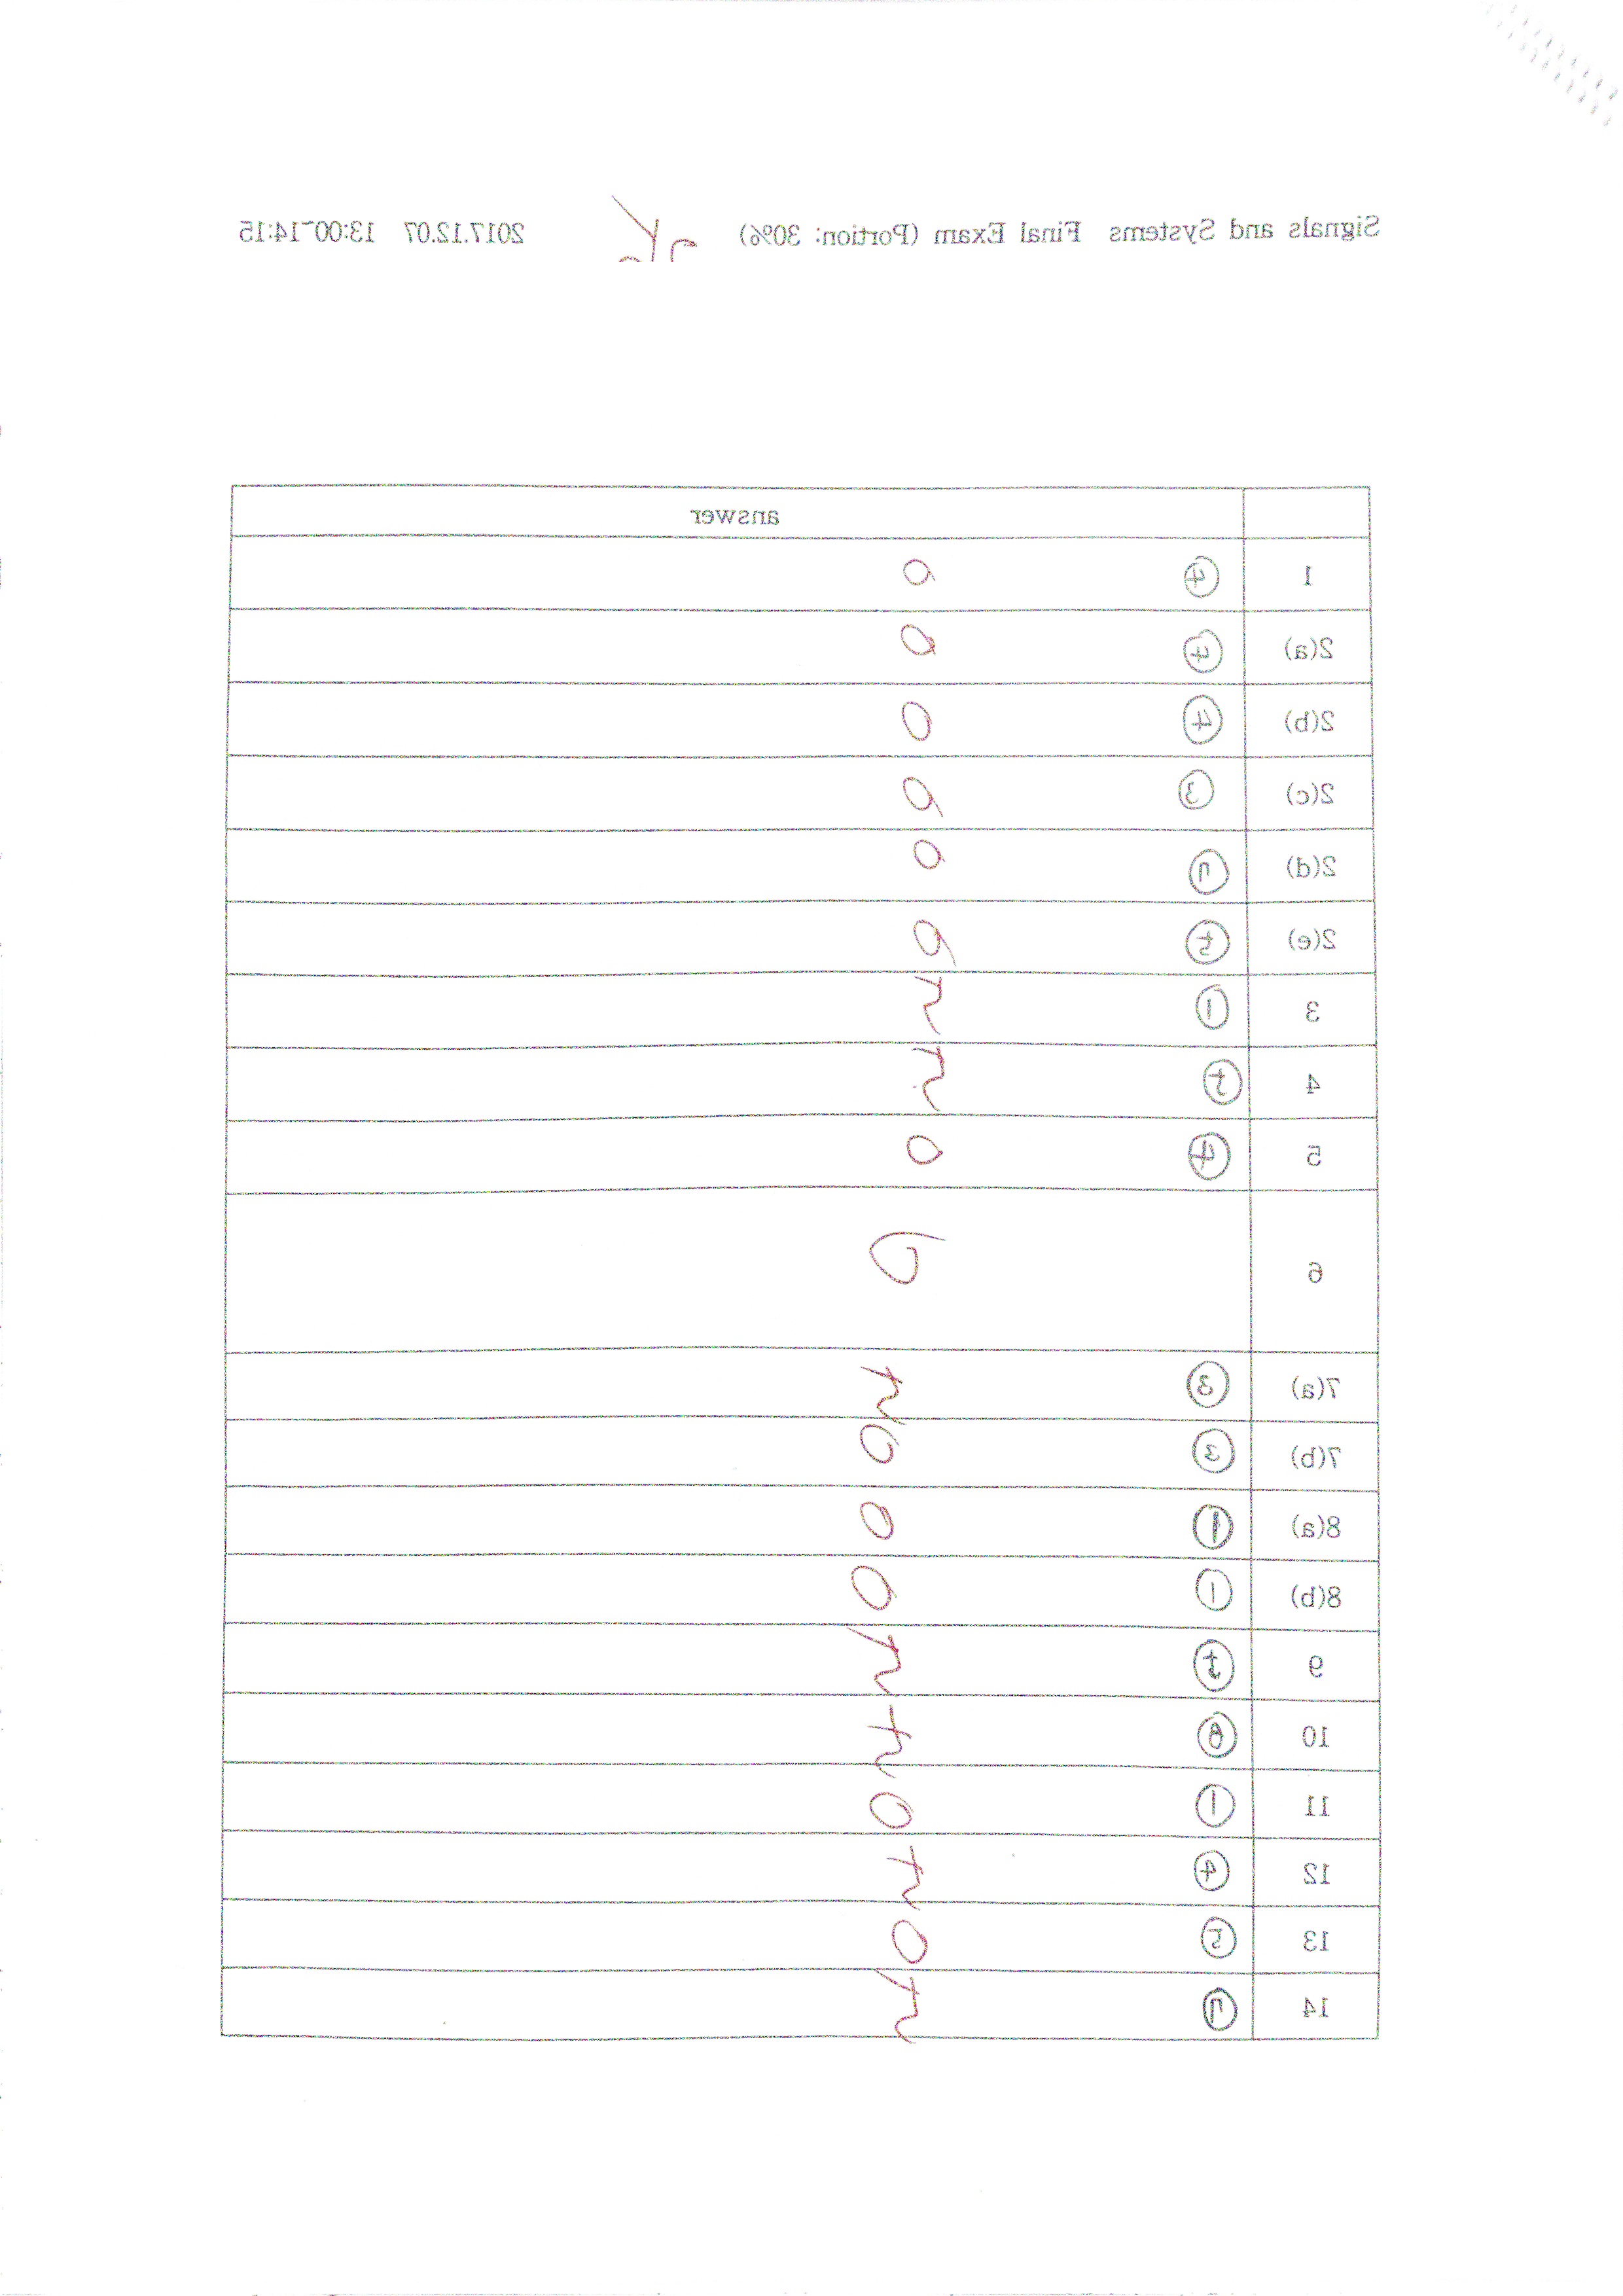 Signals and Systems Final Exam (Portion: 30%) 2017.12.07 13:00~14:15
answer
1 ④
2(a) ④
2(b) ④
2(c) ③
2(d) ⑦
2(e) ⑤
3 ①
4 ⑤
5 ④
6
7(a) ③
7(b) ③
8(a) ①
8(b) ①
9 ⑤
10 ⑧
11 ①
12 ④
13 ⑤
14 ⑦